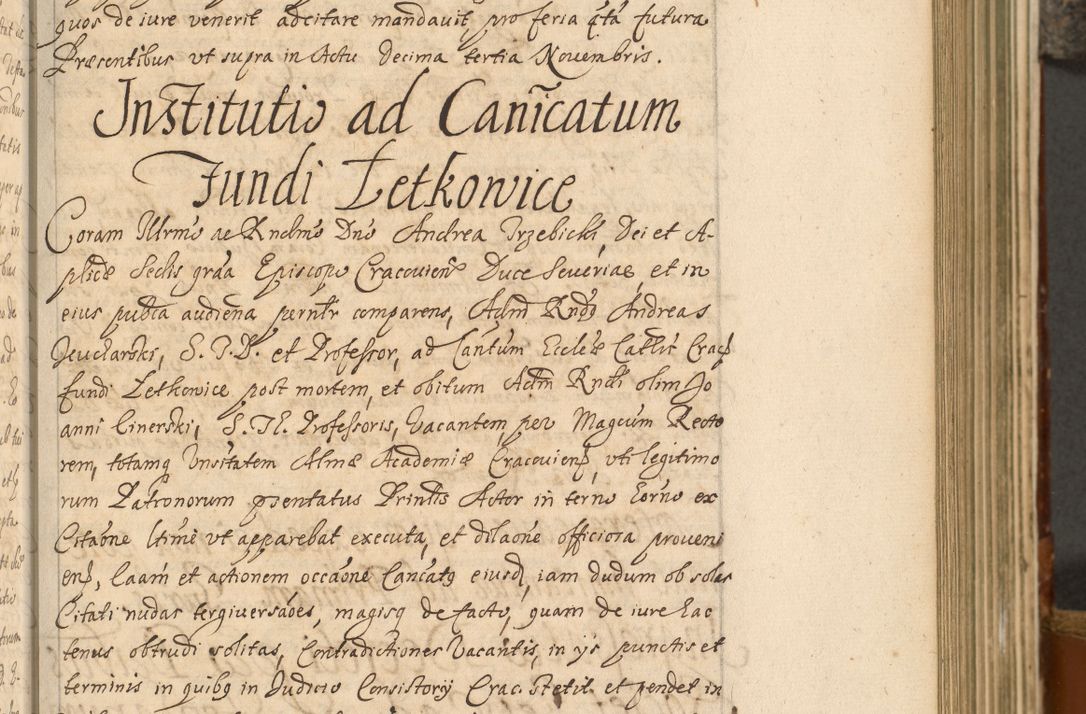 quos de iure venerit adcitare mandavit pro feria qtã futura
Præsentibus vt supra in Actu decima tertia Novembris.
Institutio ad Canicatum
Fundi Łetkowice
Coram Illrmo ac Rndmo Dno Andrea Trzebicki, Dei et A-
plicæ Sedis graa Episcopo Cracovien Duce Severiæ, et in
eius pubca audiena personlr comparens, Adm Rndg Andreas
S. T. D. et Professor, ad Cantum Eccleæ Cathlis Crac
fundi Letkowice post mortem, et obitum Adm Rndi olim Jo
anni Cinerski, S. Th. Professoris, Vacantem, per Magcum Recto
rem, totamq Vnsitatem Almæ Academiæ Cracovien, vti legitimo
rum Patronorum psentatus Printis Actor in terno eorno ex
Citaone ltime vt apparebat executa, et dilaone officiosa proveni
en, Caam et actionem occaone Cancatg eiusd, iam dudum ob solas
Citati nudas tergiversaoes, magisq de facto, quam de iure hac
tenus obtrudi solitas, Contradictiones Vacantis, in ijs punctis et
terminis in quibg in Judicio Consistorij Crac. Stetit et pendet in